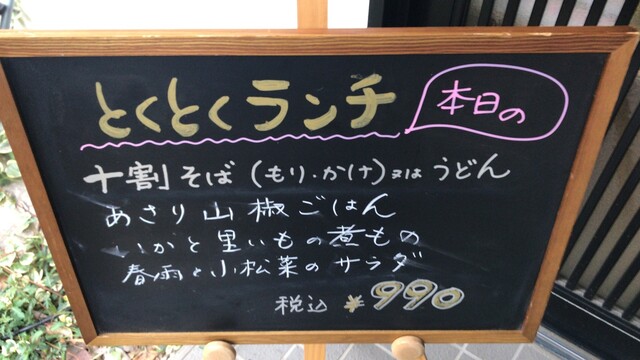 本日の
とくとくランチ
十割そば(もり・かけ)又はうどん
あさり山椒ごはん
いかと里いもの煮もの
春雨と小松菜のサラダ
税込 ¥990